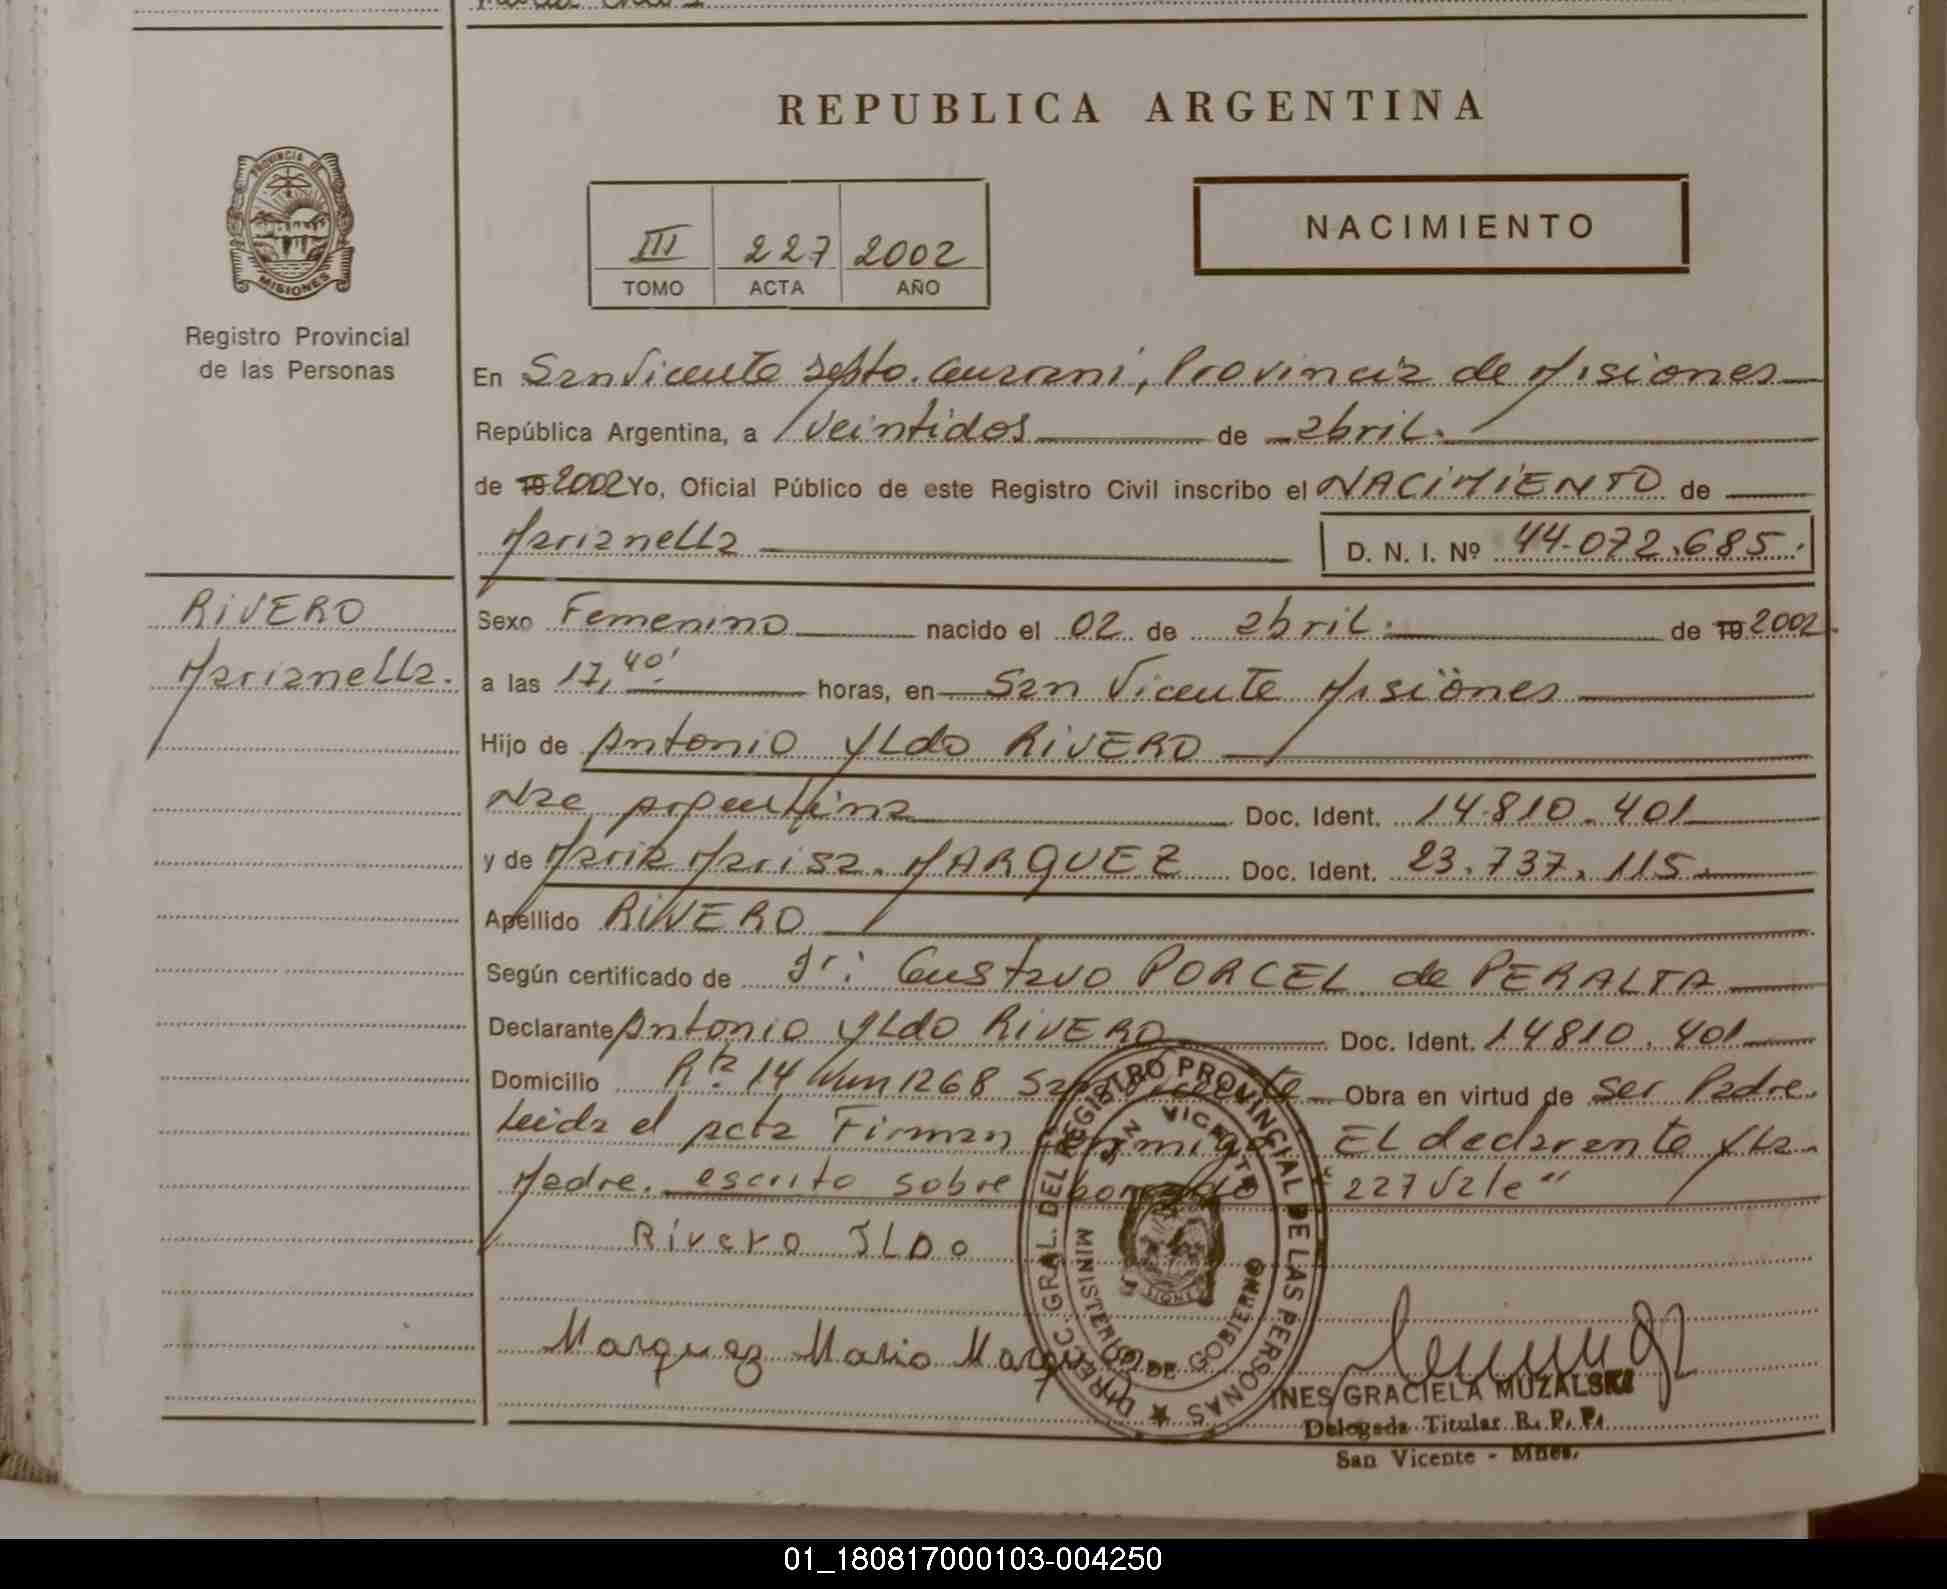 REPUBLICA ARGENTINA
PROVINCIA DE
MISIONES
Registro Provincial
de las Personas
III 227 2002
TOMO ACTA AÑO
NACIMIENTO
En San Vicente Depto. Guarani, Provincia de Misiones
República Argentina, a Veintidos de abril.
de 19 2002 Yo, Oficial Público de este Registro Civil inscribo el NACIMIENTO de
Marianella D. N. I. Nº 44.072.685.
RIVERO
Marianella.
Sexo Femenino nacido el 02 de abril. de 19 2002.
a las 17,40' horas, en San Vicente Misiones
Hijo de Antonio YLdo RIVERO
Nac Argentina Doc. Ident. 14.810.401
y de Maria Marisa. MARQUEZ Doc. Ident. 23.737.115.
Apellido RIVERO
Según certificado de Dr: Gustavo PORCEL de PERALTA
Declarante Antonio YLdo RIVERO Doc. Ident. 14810.401
Domicilio Rta. 14 Km 1268 San Vicente Obra en virtud de ser Padre.
Leida el acta Firman conmigo EL declarante y la
Madre. escrito sobre borrado "227 Vale"
Rivero ILDo
Marquez Maria
DIREC. GRAL. DEL REGISTRO PROVINCIAL DE LAS PERSONAS
SAN VICENTE
MINISTERIO DE GOBIERNO
INES GRACIELA MUZALSKI
Delegada Titular R. P. P.
San Vicente - Mnes.
01_180817000103-004250